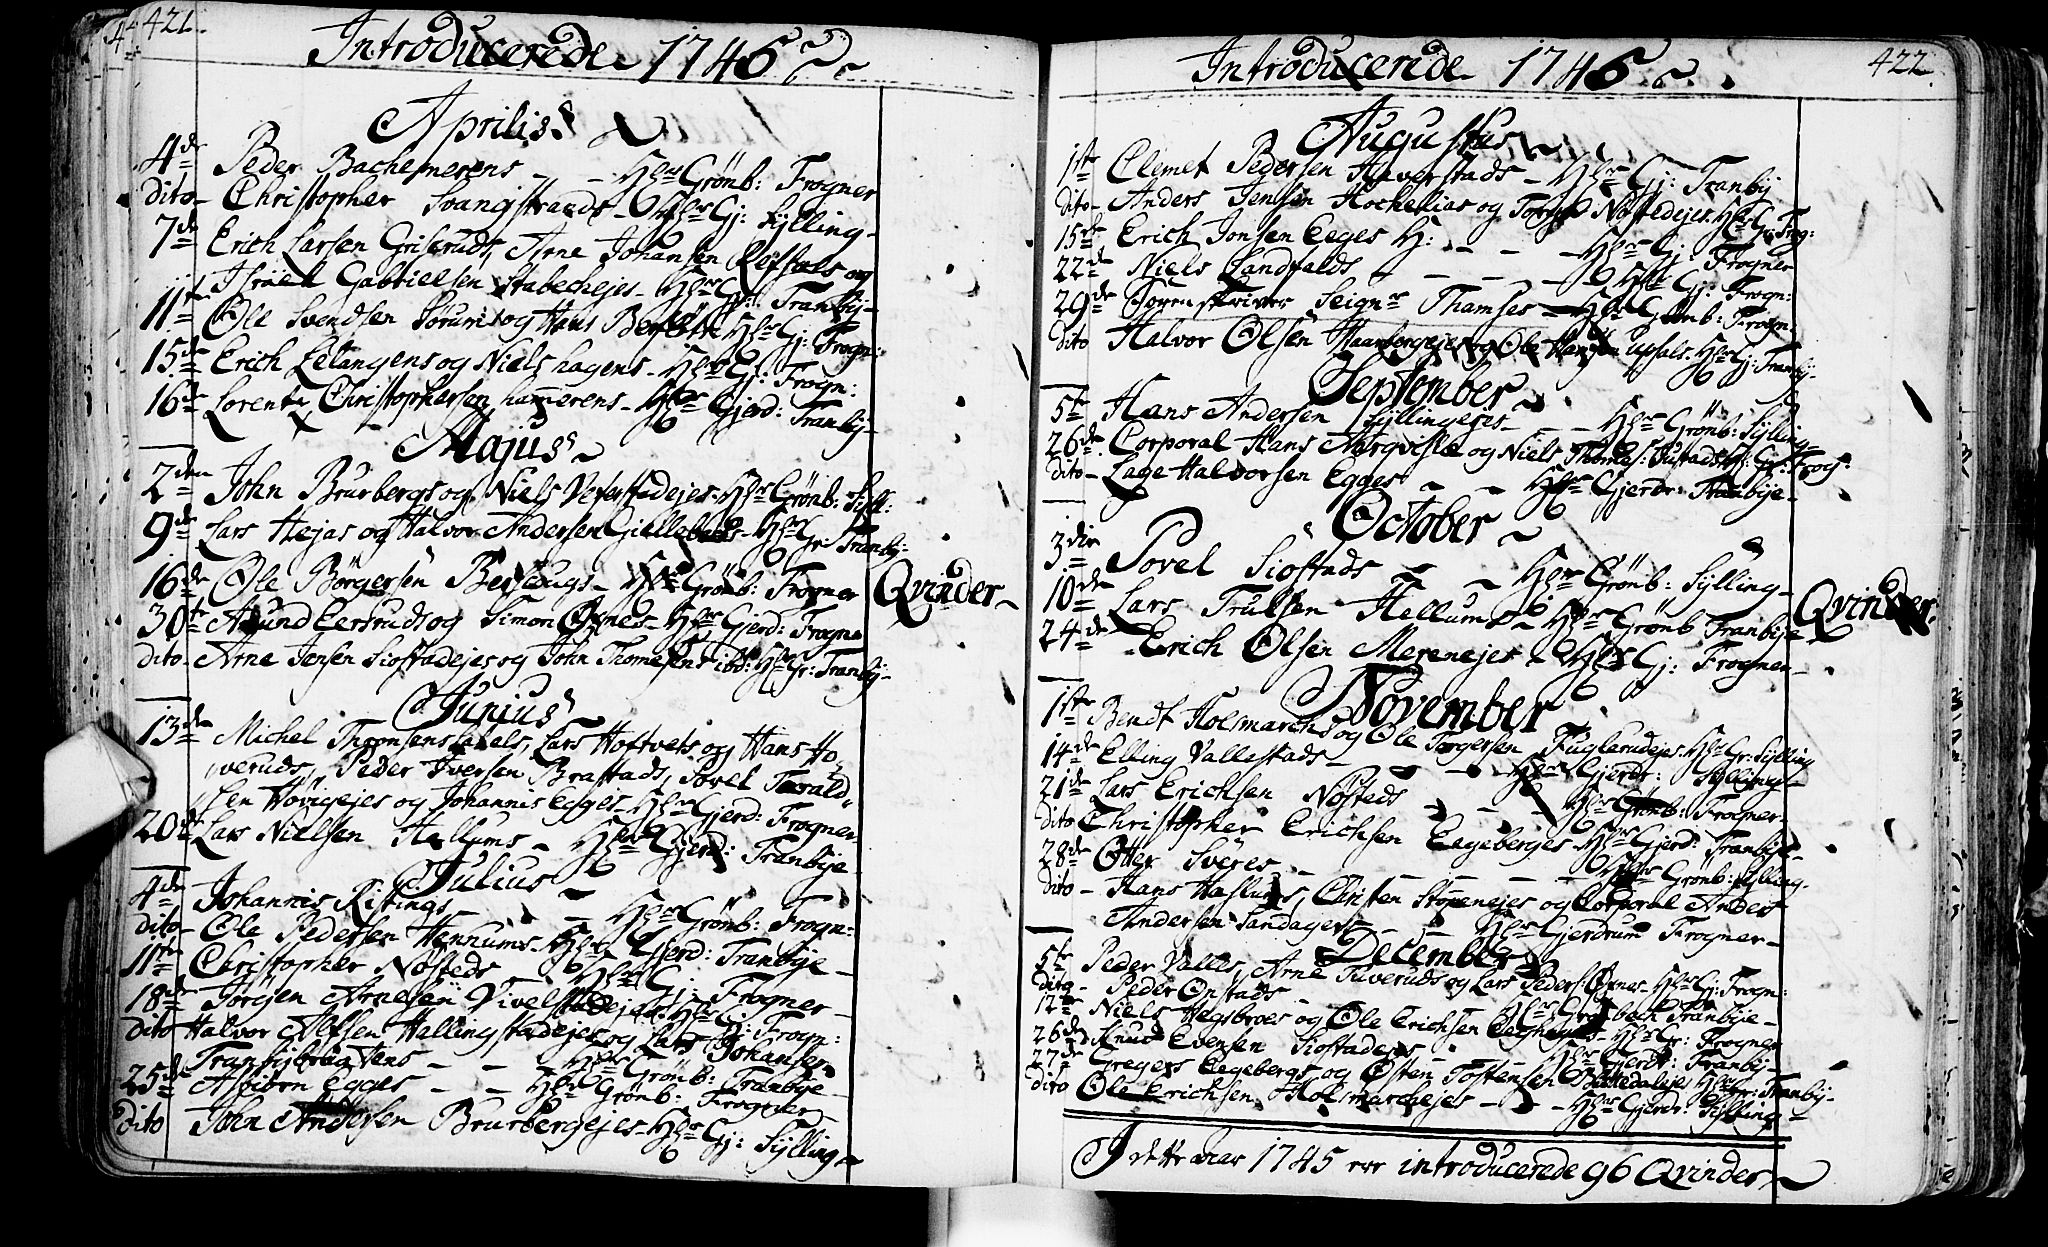 421.
Introducerede 1745
Aprilis
4de Peder Bachemerens - - Hr Grönb: Frogner
dito - Christopher Svangstrands - Hr Gj: Sylling -
7de Erich Larsen Griserud, Arne Johansen Refsals og
Israel Gabrielsen Stabechejes - Hr Gj: Tranbÿ -
11te Ole Svendsen og Hans Hr Gj: Frogn:
15de Erich Letangens og Niels hagens - Hr Gj: Frogn:
16de Lorentz Christophersen hamerens - Hr Gjerd: Tranbÿ -
Majus
2den John Brurbergs og Niels Veferstadejes - Hr Grönb: Syll:
9de Lars Hejas og Halvor Andersen Gillebechs - Hr Gr: Tranbÿ:
16de Ole Börgersen Berskaugs - Hr Grönb: Frogner
30te Amund Eersrud og Simon Öfnes - Hr Gjerd: Frogne
dito - Arne Jensen Siostadejes og John Thomesens ibd: Hr Gr: Tranbÿ -
Qvinder
Junius
13de Michel Thronsens , Lars Hoftvets og Hans Ho
veruds, Peder Iversen Brastads, Povel Torald
sen Hövigejes og Johannis Egges - Hr Gjerd: Frogner
20de Lars Nielsen Hellums - Hr Gjerd: Tranbÿe
Julius
4de Johannis Rikings - Hr Grönb: Frogn:
dito - Ole Pedersen Hennums - Hr Gjerd: Tranbÿe -
11te Christopher Nösteds Hr Gj: Frogner -
18de Jörgen Arnesen Vivelstadejes Hr Gj: Frogn:
dito Halvor Alfsen Hallingstadejes og Lars Johansen
Tranbÿ - - Hr Grönb: Tranbÿe
25de Asbiörn Egges - - Hr Grönb: Frogner
dito John Andersen Brurbergejes - Hr Gj: Sylling -
422.
Introducerede 1745
Augustus
1ste Clemet Pedersen Haverstads - Hr Gj: Tranbÿ
dito - Anders Jensen Hochelias og Nöstedejes Hr Gr: Frog:
15de Erich Jonsen Eeges H: - - - Hr Gj: Frogner
22de Niels Landfalds - - - - Hr Gj: Frogn:
29de Sorenskriver Seignr Thamses - Hr Grönb: Frogn:
dito Halvor Olsen Haanbergejes og Ole Hansen Upsals Hr Gj: Tranbÿ -
September
5te Hans Andersen Syllingejes - - Hr Grönb: Sylling -
26de Corporal Hans og Niels Thomes: Justads Hr Gr: Frog:
dito - Lage Halvorsen Egges - - Hr Gjerdr: Tranbÿe -
October
3die Povel Siostads - - Hr Grönb: Sylling -
10de Lars Trulsen Hellums - Hr Grönb Tranbÿe
24de Erich Olsen Merenejes - Hr Gj: Frogner -
Qvinder
November
1ste Bendt Holsmarchs og Ole Torgersen Fuglerudejes Hr Gr: Sylling
14de Elling Vallestads - - - Hr Gjerdr: Sylling -
21de Lars Erichsen Nösteds - - Hr Grönb: Frogner -
dito Christopher Erichsen Eegeberges Hr Gjerd: Tranbÿe -
28de Otter Sveres - - - - Hr Grönb: Sylling -
dito - Hans Haslums, Christen Stopenejes og Corporal Anders
Andersen Sandagers - Hr Gjerdrum Frogner -
December
5te Peder Valles, Arne Tuveruds og Lars Peders: Öfnes Hr Gj: Frogn:
dito - Peder Onstads - Hr Grönbech Tranbÿe -
12te Niels Hegsbroes og Ole Erichsen - Hr Gr: Frogner
26de Knud Evensen Siostadejes - Hr Gjerdr: Tranbÿ -
27de Gregers Eegebergs og Östen Tostensen Hr Gr: Tranbÿ -
dito Ole Erichsen Holsmarchejes - - - Hr Gjerdr: Sylling -
I dette aar 1745 ere introducerede 96 Qvinder -